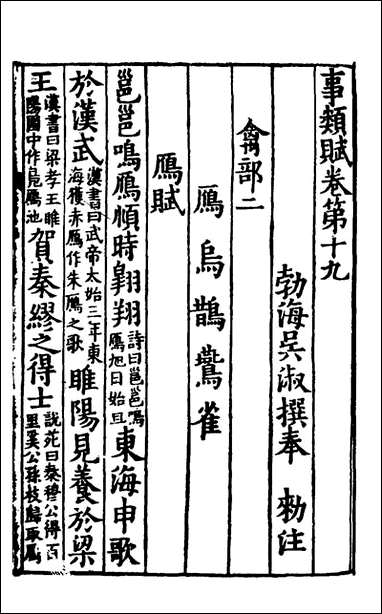 事類賦卷第十九
勃海吳淑撰奉 勑注
禽部二
鴈烏鵲鷰雀
鴈賦
邕邕鳴鴈順時翺翔詩曰邕邕鳴鴈旭日始旦東海申歌
於漢武漢書曰武帝太始三年東海獲赤鴈作朱鴈之歌睢陽見養於梁
王漢書曰梁孝王睢陽園中作鳧鴈池賀秦繆之得士說苑曰秦穆公得百里奚公孫枝歸取鴈